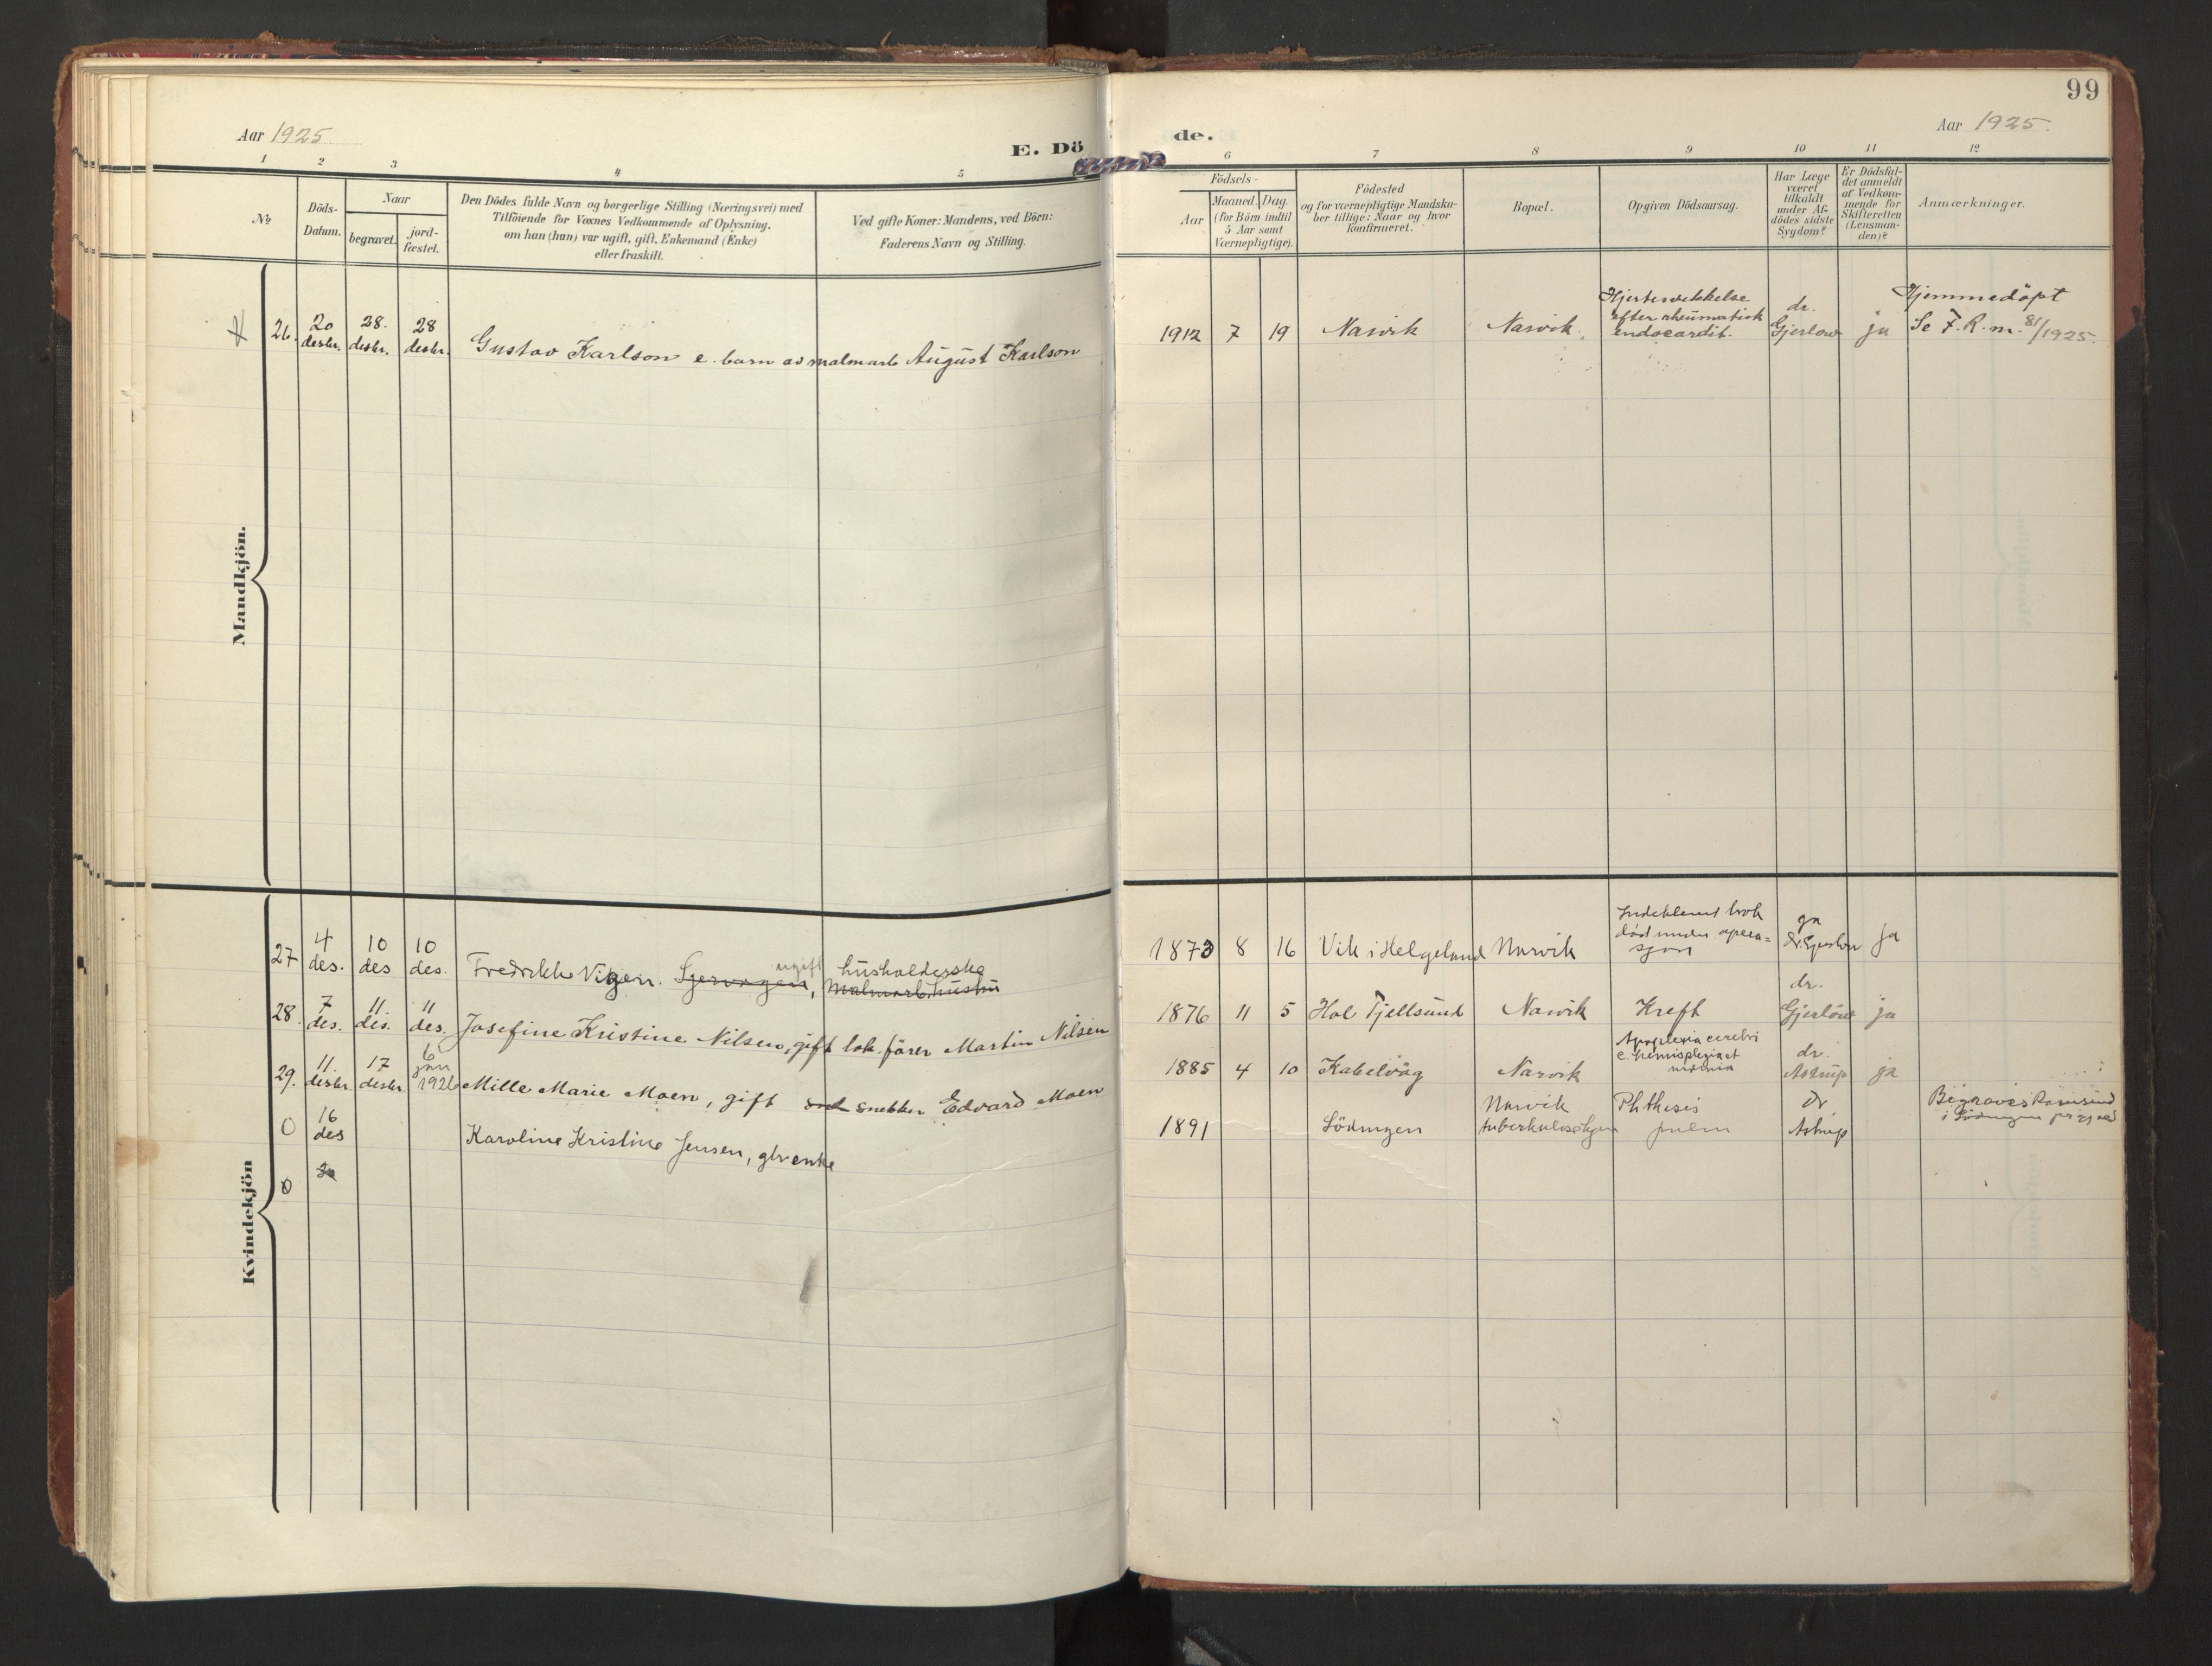 99
Aar 1925
E. Dö
de.
Aar 1925.
1 2 3 4 5 6 7 8 9 10 11 12
№
Döds-
Datum.
Naar
begravet.
jord-
fæstet.
Den Dödes fulde Navn og borgerlige Stilling (Næringsvei) med
Tilföiende for Voxnes Vedkommende af Oplysning,
om han (hun) var ugift, gift, Enkemand (Enke)
eller fraskilt.
Ved gifte Koner: Mandens, ved Börn:
Faderens Navn og Stilling.
Födsels-
Aar
Maaned. Dag.
(for Börn indtil
5 Aar samt
Værnepligtige).
Födested
og for værnepligtige Mandska-
ber tillige: Naar og hvor
konfirmeret.
Bopæl.
Opgiven Dödsaarsag.
Har Læge
været
tilkaldt
under Af-
dödes sidste
Sygdom?
Er Dödsfal-
det anmeldt
af Vedkom-
mende for
Skifteretten
(Lensman-
den)?
Anmærkninger.
Mandkjön.
26. 20 desbr. 28. desbr. 28 desbr. Gustav Karlson e. barn av malmarb August Karlson
1912 7 19 Narvik Narvik.
Hjertesvekkelse
efter rheumatisk
endocardit.
dr.
Gjerlow
ja
Hjemmedöpt
Se F.R.m. 81/1925.
Kvindekjön
27 4 des. 10 des 10 des. Fredrikke Vigen. ugift husholderske
1873 8 16 Vik i Helgeland Narvik
Indeklemt brok
död under opera=
sjon
ja
dr. Gjerlow
ja
28. 7 des. 11 des. 11 des. Josefine Kristine Nilsen, gift lok. förer Martin Nilsen
1876 11 5 Hol Tjellsund Narvik Kreft
dr.
Gjerlöw
ja
29. 11. desbr. 17 desbr. 6 jan 1926 Mille Marie Moen, gift snekker Edvard Moen
1885 4 10 Kabelvåg Narvik
Apoplexia cerebri
dr.
Astrup
ja
0 16 des Karoline Kristine Jensen, enke
1891 Lödingen
Narvik
tuberkulosehjem
Phthisis
pulm
dr
Astrup
Begraves Ramsund
i Lödingen
0 20